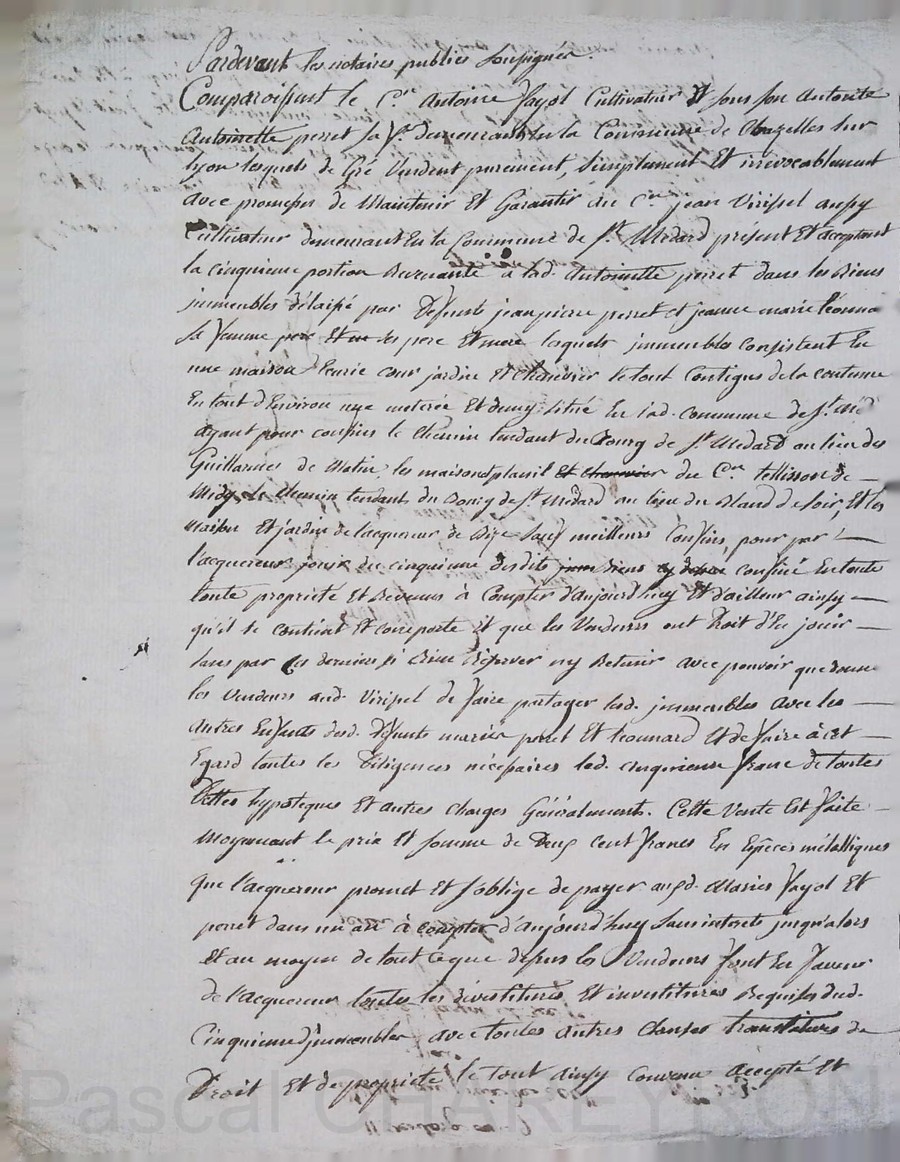 Pardevant les notaires publics soussignés.
Comparoissent le C.en Antoine fayol Cultivateur Et sous son Autorité
Antoinette perret sa f.e demeurants En la Commune de Chazelles sur
lyon lesquels de Gré Vendent purement, Simplement Et irrévocablement
avec promesse de Maintenir Et Garantir au C.en jean Virissel aussy
Cultivateur demeurant En la Commune de St. Médard présent Et acceptant
la cinquieme portion Revenante à lad. Antoinette perret dans les Biens
immeubles délaissé par Defunts jean pierre perret et jeanne marie
sa femme ses pere Et mere lesquels immeubles Consistent En
une maison Ecurie cour jardin Et Chenevier le tout Contigus de la contenue
En tout d'Environ une meterée Et demy Situé En lad. Commune de St. Méd
ayant pour confins le Chemin tendant du Bourg de St. Medard au lieu des
Guillarmes de Matin les maisons plassil Et Chenevier du C.en tellisson de
Midy le Chemin tendant du Bourg de St. Médard au lieu du Bland de soir, Et les
Maison Et jardin de l'acquereur de Bize Sauf meilleurs Confins, pour par
l'acquereur jouir du cinquieme desdits confiné En toute
toute propriété Et Revenus à Compter d'aujourd'huy Et d'ailleur ainsy
qu'il se contient Et comporte Et que les Vendeurs ont Droit d'En jouir
sans par Ces derniers s'i Rien Réserver ny Retenir avec pouvoir que donne
les Vendeurs aud. Virissel de faire partager lesd. immeubles avec les
autres Enfants desd. Défunts mariés perret Et leonnard Et de faire à cet
Egard toutes les Diligences nécessaires led. cinquieme franc de toutes
Dettes hypoteques Et autres charges Généralement. Cette Vente Est faite
Moyennant le prix Et somme de Deux Cent francs En Espèces métalliques
que l'acquereur promet Et s'oblige de payer auxd. Mariés fayol Et
perret dans un an à compter d'aujourd'huy sans interets jusqu'alors
Et au moyen de tout ce que dessus les Vendeurs font En faveur
de l'acquereur toutes les dévestitures Et investitures Requises dud.
Cinquieme d'immeubles avec toutes autres Clauses translatives de
Droit Et de propriété le tout ainsy convenu accepté Et
Pascal CHAREYRON